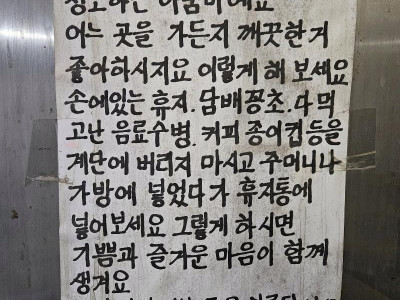 청소하는 아줌마예요
어느 곳을 가든지 깨끗한거
좋아하시지요 이렇게 해 보세요
손에있는 휴지. 담배꽁초. 다 먹
고난 음료수병. 커피 종이컵 등을
계단에 버리지 마시고 주머니나
가방에 넣었다가 휴지통에
넣어보세요 그렇게 하시면
기쁨과 즐거운 마음이 함께
생겨요